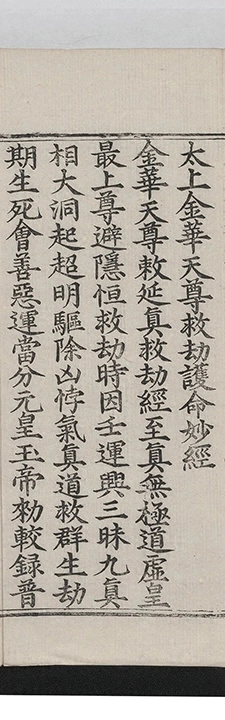 太上金華天尊救劫護命妙經
金華天尊敕延真救劫經至真無極道虛皇
最上尊避隱恒救劫時因壬運興三昧九真
相大洞起超明驅除凶悖氣真道救群生劫
期生死會善惡運當分元皇玉帝勑較錄普